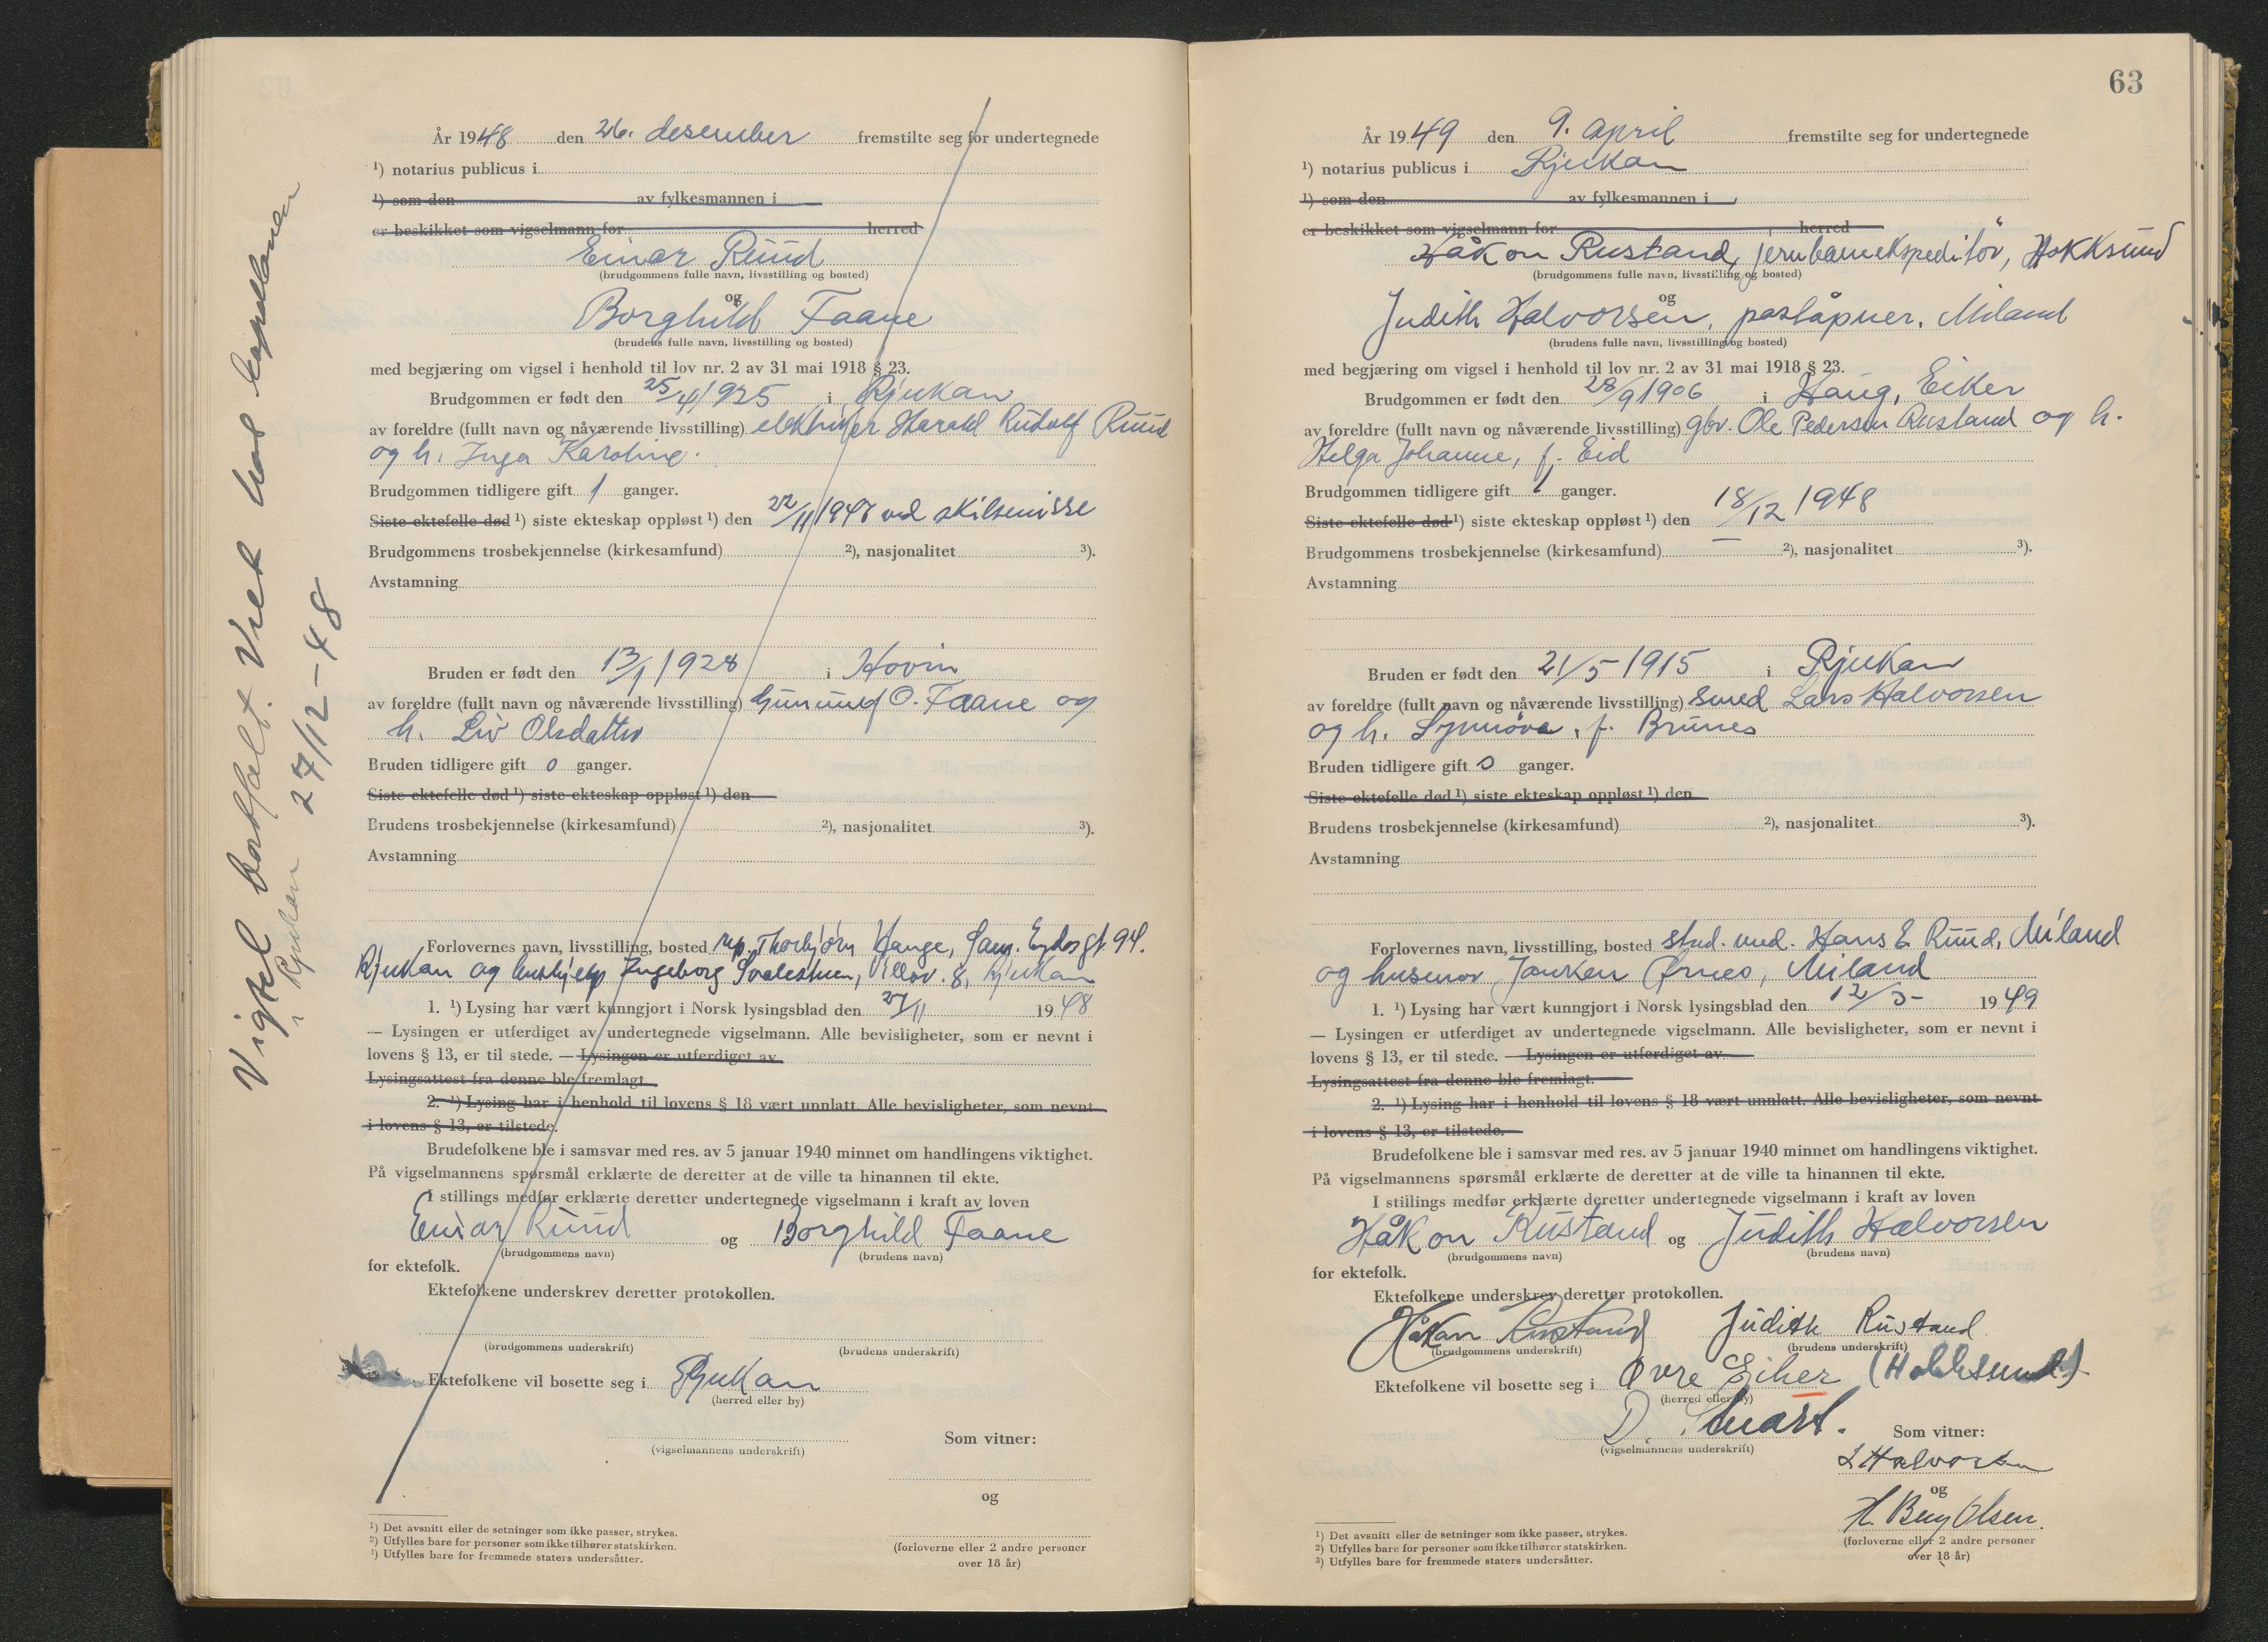 Vigsel bortfalt. Viet hos kapellanen
i Rjukan 27/12-48
År 1948 den 26. desember fremstilte seg for undertegnede
¹) notarius publicus i
¹) som den av fylkesmannen i
er beskikket som vigselmann for herred
Einar Ruud
(brudgommens fulle navn, livsstilling og bosted)
og
Borghild Faane
(brudens fulle navn, livsstilling og bosted)
med begjæring om vigsel i henhold til lov nr. 2 av 31 mai 1918 § 23.
Brudgommen er født den 25/4 1925 i Rjukan
av foreldre (fullt navn og nåværende livsstilling) elektriker Harald Rudolf Ruud
og h. Inga Karoline.
Brudgommen tidligere gift 1 ganger.
Siste ektefelle død ¹) siste ekteskap oppløst ¹) den 22/11 1947 ved skilsmisse
Brudgommens trosbekjennelse (kirkesamfund) ²), nasjonalitet ³).
Avstamning
Bruden er født den 13/1 1928 i Hovin
av foreldre (fullt navn og nåværende livsstilling) Gunnulf O. Faane og
h. Liv Olsdatter
Bruden tidligere gift 0 ganger.
Siste ektefelle død ¹) siste ekteskap oppløst ¹) den
Brudens trosbekjennelse (kirkesamfund) ²), nasjonalitet ³).
Avstamning
Forlovernes navn, livsstilling, bosted rep. Thorbjørn Hauge, Sam. Eydesgt 94.
Rjukan og hushjelp Ingeborg Svalestuen, Villav. 8, Rjukan
1. ¹) Lysing har vært kunngjort i Norsk lysingsblad den 27/11 1948
— Lysingen er utferdiget av undertegnede vigselmann. Alle bevisligheter, som er nevnt i
lovens § 13, er til stede. — Lysingen er utferdiget av
Lysingsattest fra denne ble fremlagt
2. ¹) Lysing har i henhold til lovens § 18 vært unnlatt. Alle bevisligheter, som nevnt
i lovens § 13, er tilstede.
Brudefolkene ble i samsvar med res. av 5 januar 1940 minnet om handlingens viktighet.
På vigselmannens spørsmål erklærte de deretter at de ville ta hinannen til ekte.
I stillings medfør erklærte deretter undertegnede vigselmann i kraft av loven
Einar Ruud og Borghild Faane
(brudgommens navn) (brudens navn)
for ektefolk.
Ektefolkene underskrev deretter protokollen.
(brudgommens underskrift) (brudens underskrift)
Ektefolkene vil bosette seg i Rjukan
(herred eller by)
Som vitner:
(vigselmannens underskrift)
og
¹) Det avsnitt eller de setninger som ikke passer, strykes.
²) Utfylles bare for personer som ikke tilhører statskirken.
³) Utfylles bare for fremmede staters undersåtter.
(forloverne eller 2 andre personer
over 18 år)
63
År 1949 den 9. april fremstilte seg for undertegnede
¹) notarius publicus i Rjukan
¹) som den av fylkesmannen i
er beskikket som vigselmann for herred
Håkon Rustand, jernbaneekspeditör, Hokksund
(brudgommens fulle navn, livsstilling og bosted)
og
Judith Halvorsen, poståpner, Miland
(brudens fulle navn, livsstilling og bosted)
med begjæring om vigsel i henhold til lov nr. 2 av 31 mai 1918 § 23.
Brudgommen er født den 28/9 1906 i Haug, Eiker
av foreldre (fullt navn og nåværende livsstilling) gbr. Ole Pedersen Rustand og h.
Helga Johanne, f. Eid
Brudgommen tidligere gift 1 ganger.
Siste ektefelle død ¹) siste ekteskap oppløst ¹) den 18/12 1948
Brudgommens trosbekjennelse (kirkesamfund) — ²), nasjonalitet ³).
Avstamning
Bruden er født den 21/5 1915 i Rjukan
av foreldre (fullt navn og nåværende livsstilling) smed Lars Halvorsen
og h. Synnöva, f. Brunes
Bruden tidligere gift 0 ganger.
Siste ektefelle død ¹) siste ekteskap oppløst ¹) den
Brudens trosbekjennelse (kirkesamfund) ²), nasjonalitet ³).
Avstamning
Forlovernes navn, livsstilling, bosted stud. med. Hans E. Ruud, Miland
og husmor Jonken Ørnes, Miland
1. ¹) Lysing har vært kunngjort i Norsk lysingsblad den 12/3- 1949
— Lysingen er utferdiget av undertegnede vigselmann. Alle bevisligheter, som er nevnt i
lovens § 13, er til stede. — Lysingen er utferdiget av
Lysingsattest fra denne ble fremlagt.
2. ¹) Lysing har i henhold til lovens § 18 vært unnlatt. Alle bevisligheter, som nevnt
i lovens § 13, er tilstede.
Brudefolkene ble i samsvar med res. av 5 januar 1940 minnet om handlingens viktighet.
På vigselmannens spørsmål erklærte de deretter at de ville ta hinannen til ekte.
I stillings medfør erklærte deretter undertegnede vigselmann i kraft av loven
Håkon Rustand og Judith Halvorsen
(brudgommens navn) (brudens navn)
for ektefolk.
Ektefolkene underskrev deretter protokollen.
Håkon Rustand Judith Rustand
(brudgommens underskrift) (brudens underskrift)
Ektefolkene vil bosette seg i Øvre Eiker (Hokksund)
(herred eller by)
D.
(vigselmannens underskrift)
Som vitner:
L Halvorsen
og
H. Olsen.
(forloverne eller 2 andre personer
over 18 år)
¹) Det avsnitt eller de setninger som ikke passer, strykes.
²) Utfylles bare for personer som ikke tilhører statskirken.
³) Utfylles bare for fremmede staters undersåtter.